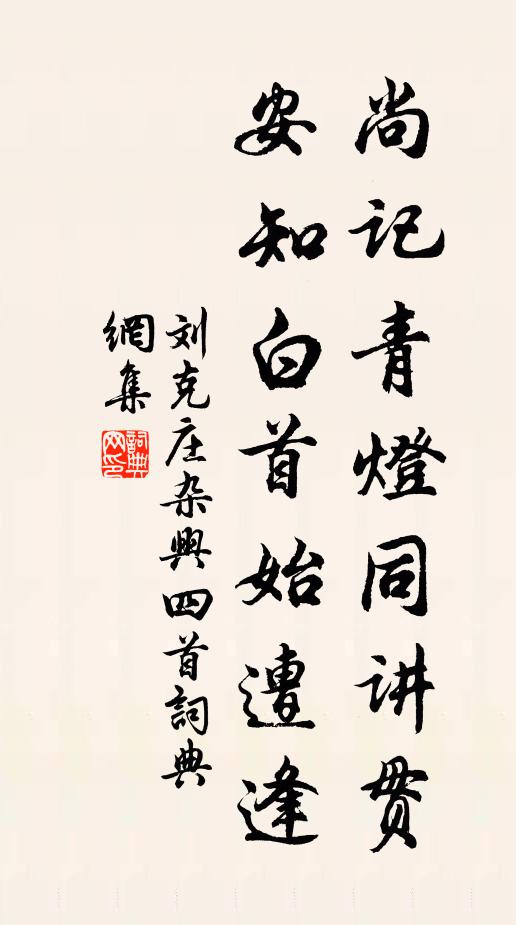 尚记青燈同讲贯
安知白首始遭逢
刘克庄杂興四首詞典
網集
詞典網印